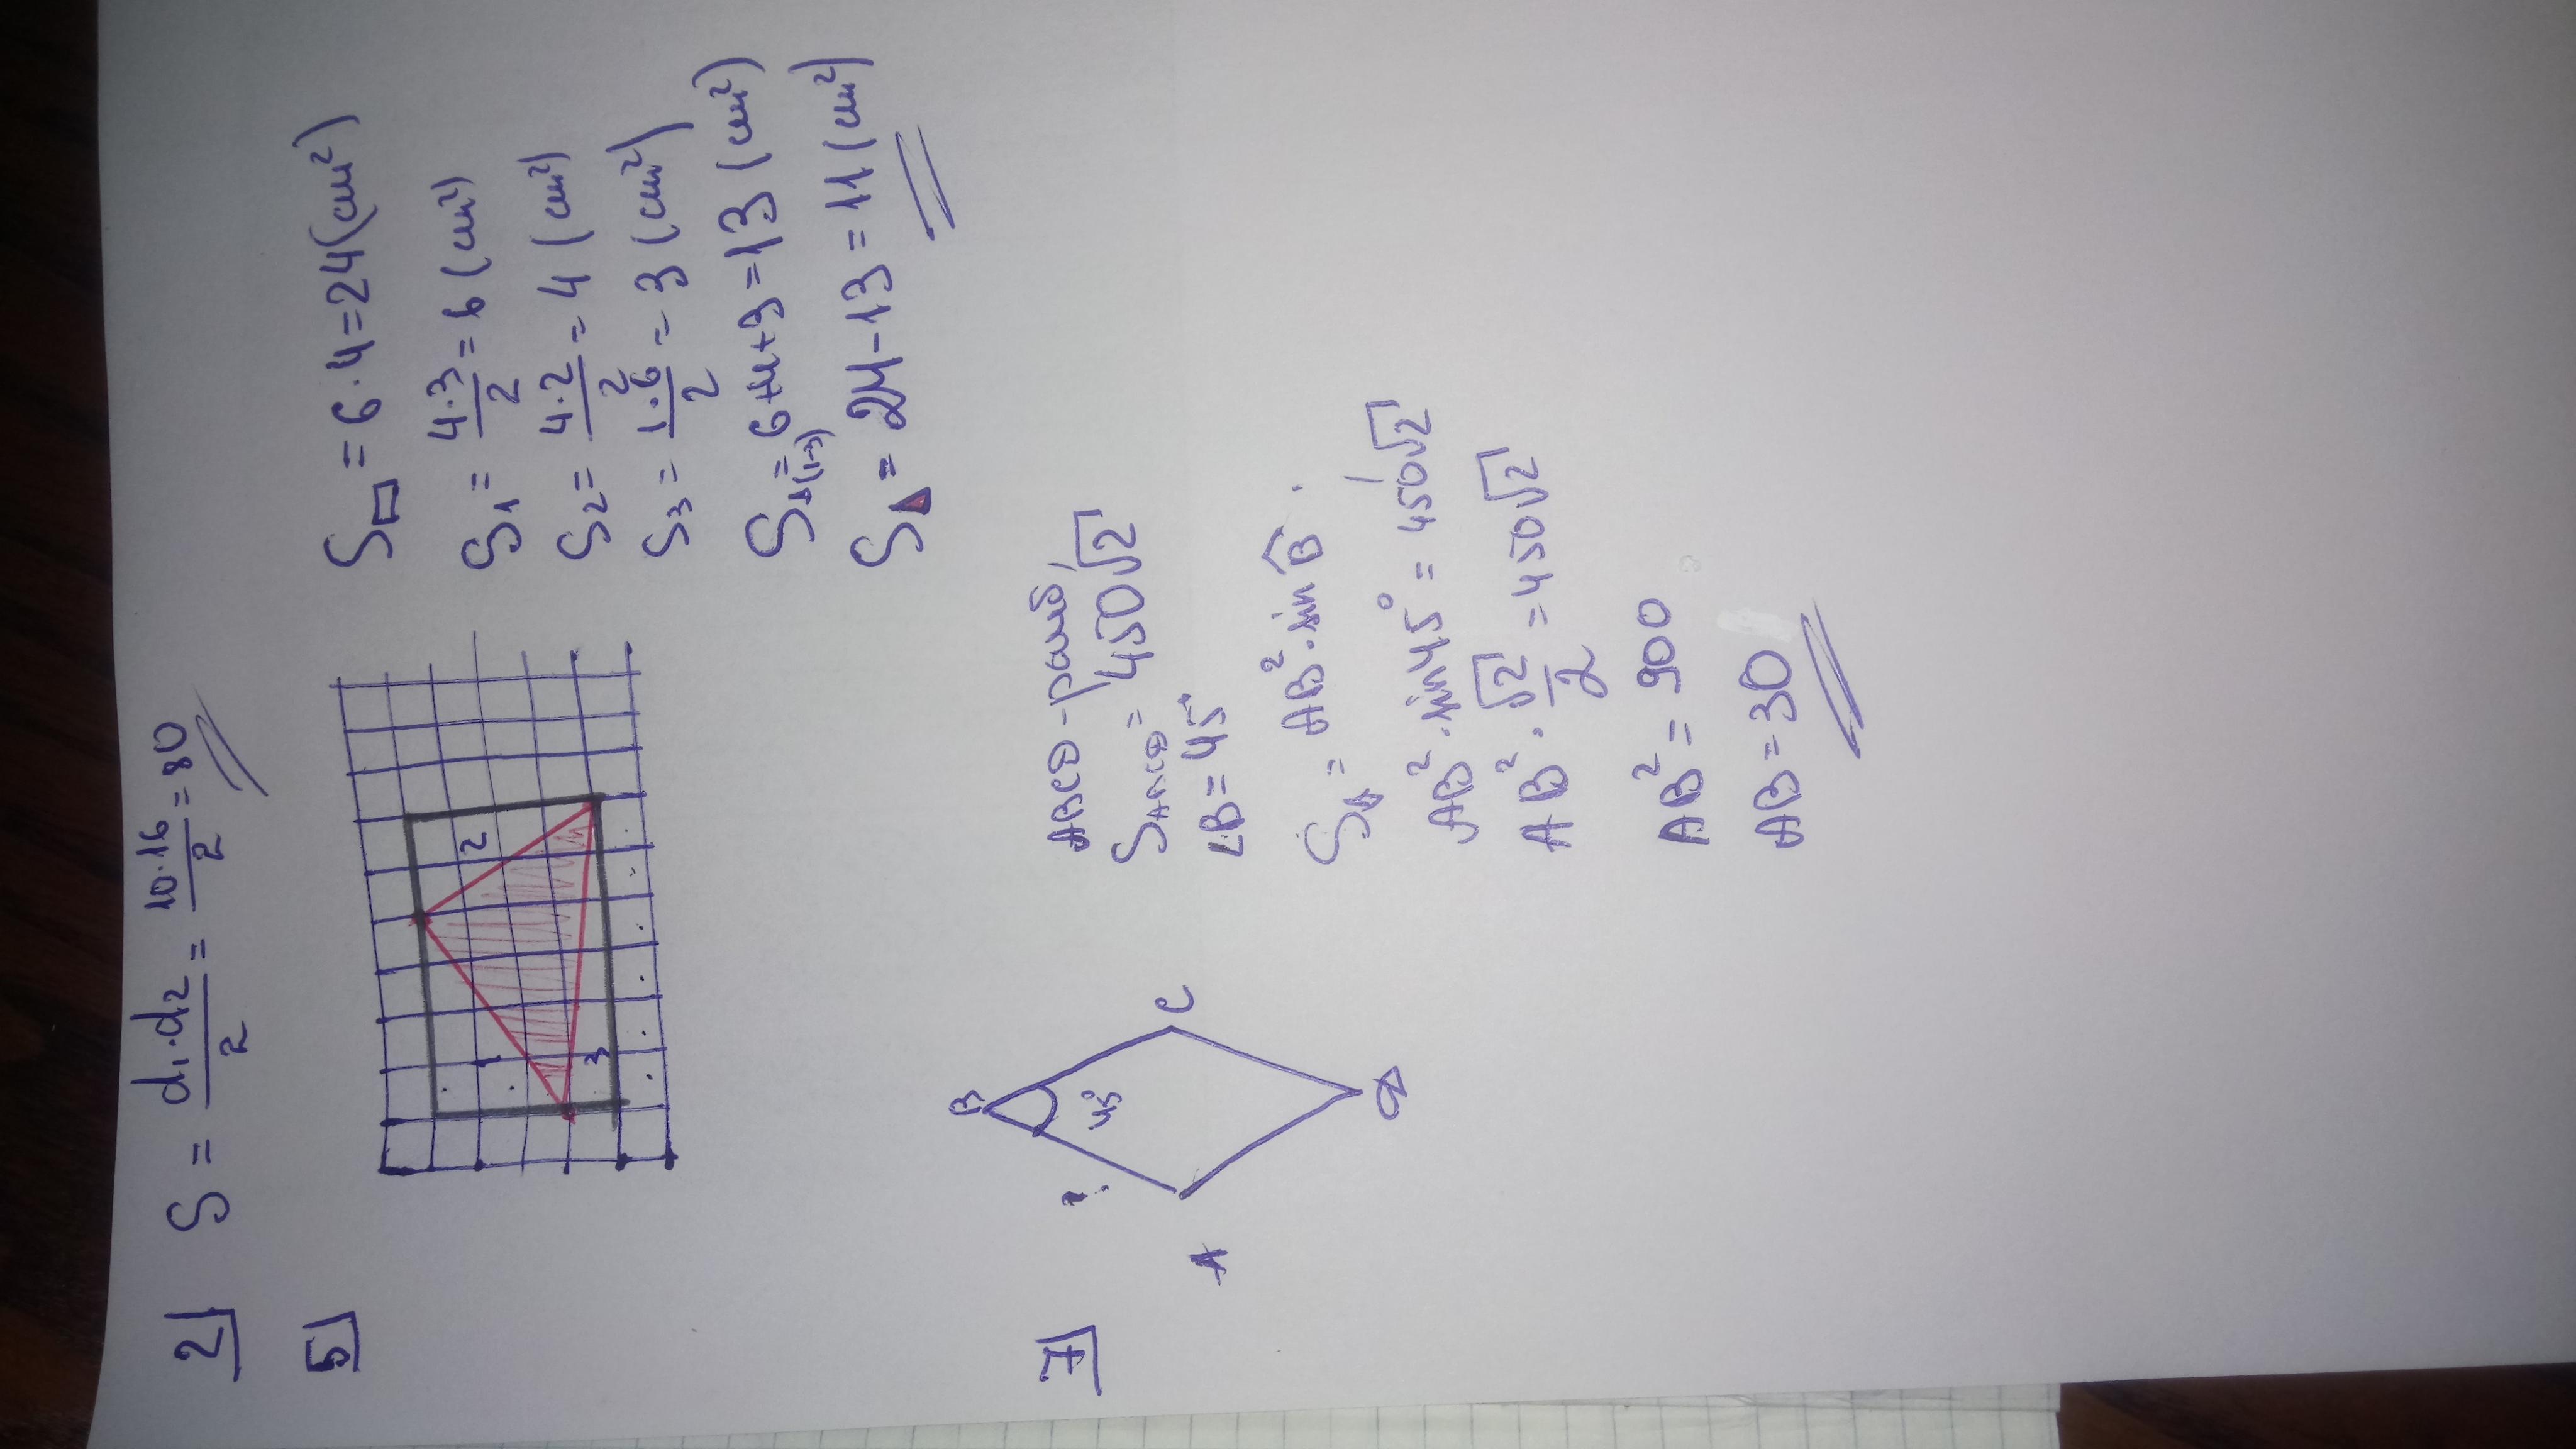 2
S = d₁·d₂/2 = 10·16/2 = 80
5
1
2
3
S▭ = 6·4 = 24 (cm²)
S₁ = 4·3/2 = 6 (cm²)
S₂ = 4·2/2 = 4 (cm²)
S₃ = 1·6/2 = 3 (cm²)
S₍₁₋₃₎ = 6+4+3 = 13 (cm²)
S▲ = 24-13 = 11 (cm²)
7
B
45°
C
A
D
ABCD - ромб,
S ABCD = 450√2
∠B = 45°
S = AB²·sin B
AB²·sin 45° = 450√2
AB²·√2/2 = 450√2
AB² = 900
AB = 30